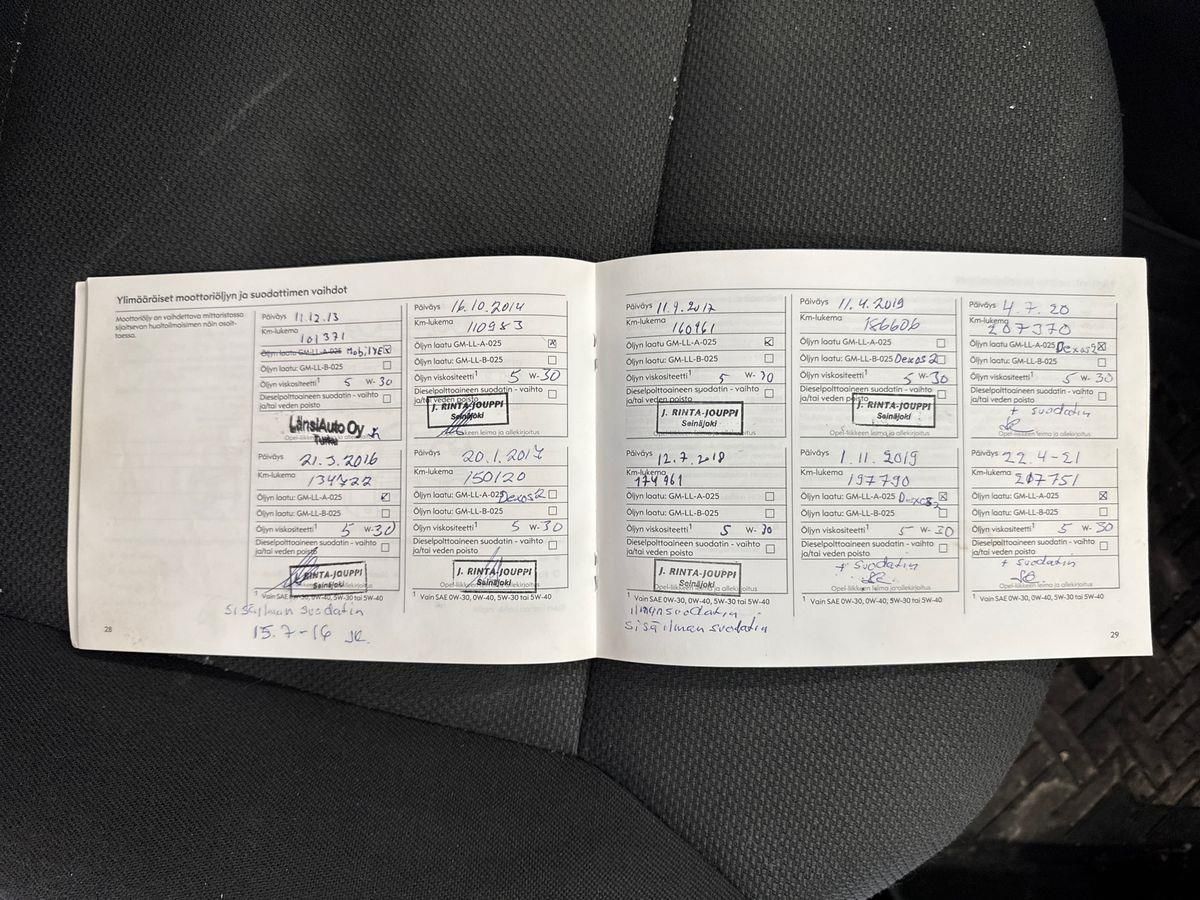 Ylimääräiset moottoriöljyn ja suodattimen vaihdot
Moottoriöljy on vaihdettava mittaristossa
sijaitsevan huoltoilmaisimen näin osoit-
taessa.
Päiväys 11.12.13
Km-lukema
101371
Öljyn laatu GM-LL-A-025 Mobil
Öljyn laatu: GM-LL-B-025
Öljyn viskositeetti1 5 W-30
Dieselpolttoaineen suodatin - vaihto
ja/tai veden poisto
LänsiAuto Oy
Turku
Opel-liikkeen leima ja allekirjoitus
Päiväys 21.3.2016
Km-lukema
134722
Öljyn laatu: GM-LL-A-025
Öljyn laatu: GM-LL-B-025
Öljyn viskositeetti1 5 W-30
Dieselpolttoaineen suodatin - vaihto
ja/tai veden poisto
J. RINTA-JOUPPI
Seinäjoki
1 Vain SAE 0W-30, 0W-40, 5W-30 tai 5W-40
sisäilman suodatin
15.7-16 JR.
28
Päiväys 16.10.2014
Km-lukema 110983
Öljyn laatu: GM-LL-A-025
Öljyn laatu: GM-LL-B-025
Öljyn viskositeetti1 5 W-30
Dieselpolttoaineen suodatin - vaihto
ja/tai veden poisto
J. RINTA-JOUPPI
Seinäjoki
Päiväys 20.1.2017
Km-lukema 150120
Öljyn laatu: GM-LL-A-025 Dexos2
Öljyn laatu: GM-LL-B-025
Öljyn viskositeetti1 5 W-30
Dieselpolttoaineen suodatin - vaihto
ja/tai veden poisto
J. RINTA-JOUPPI
Seinäjoki
Opel-liikkeen leima ja allekirjoitus
1 Vain SAE 0W-30, 0W-40, 5W-30 tai 5W-40
Päiväys 11.9.2017
Km-lukema 160961
Öljyn laatu: GM-LL-A-025
Öljyn laatu: GM-LL-B-025
Öljyn viskositeetti1 5 W-30
Dieselpolttoaineen suodatin - vaihto
ja/tai veden poisto
J. RINTA-JOUPPI
Seinäjoki
Päiväys 12.7.2018
Km-lukema
174961
Öljyn laatu: GM-LL-A-025
Öljyn laatu: GM-LL-B-025
Öljyn viskositeetti1 5 W-30
Dieselpolttoaineen suodatin - vaihto
ja/tai veden poisto
J. RINTA-JOUPPI
Seinäjoki
Opel-liikkeen leima ja allekirjoitus
1 Vain SAE 0W-30, 0W-40, 5W-30 tai 5W-40
ilmansuodatin
sisäilman suodatin
Päiväys 11.4.2019
Km-lukema 186606
Öljyn laatu: GM-LL-A-025
Öljyn laatu: GM-LL-B-025 Dexos2
Öljyn viskositeetti1 5 W-30
Dieselpolttoaineen suodatin - vaihto
ja/tai veden poisto
J. RINTA-JOUPPI
Seinäjoki
Opel-liikkeen leima ja allekirjoitus
Päiväys 1.11.2019
Km-lukema 197790
Öljyn laatu: GM-LL-A-025 Dexos2
Öljyn laatu: GM-LL-B-025
Öljyn viskositeetti1 5 W-30
Dieselpolttoaineen suodatin - vaihto
ja/tai veden poisto
+ suodatin
Opel-liikkeen leima ja allekirjoitus
1 Vain SAE 0W-30, 0W-40, 5W-30 tai 5W-40
Päiväys 4.7.20
Km-lukema
207370
Öljyn laatu: GM-LL-A-025 Dexos2
Öljyn laatu: GM-LL-B-025
Öljyn viskositeetti1 5 W-30
Dieselpolttoaineen suodatin - vaihto
ja/tai veden poisto
+ suodatin
Opel-liikkeen leima ja allekirjoitus
Päiväys 22.4-21
Km-lukema
217751
Öljyn laatu: GM-LL-A-025
Öljyn laatu: GM-LL-B-025
Öljyn viskositeetti1 5 W-30
Dieselpolttoaineen suodatin - vaihto
ja/tai veden poisto
+ suodatin
Opel-liikkeen leima ja allekirjoitus
1 Vain SAE 0W-30, 0W-40, 5W-30 tai 5W-40
29